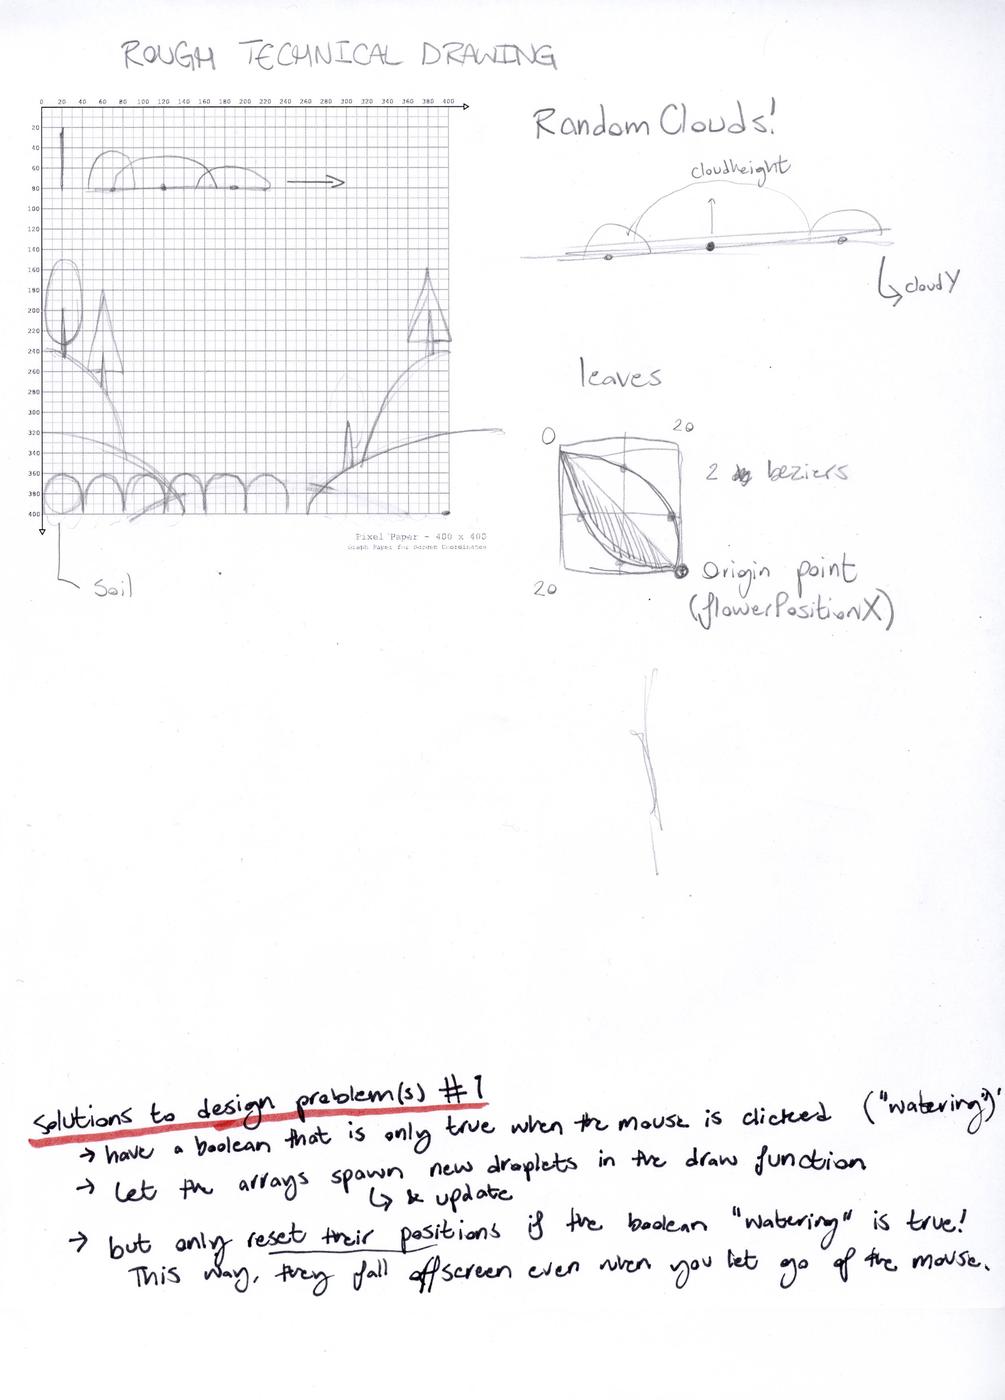 ROUGH TECHNICAL DRAWING
0 20 40 60 80 100 120 140 160 180 200 220 240 260 280 300 320 340 360 380 400
20
40
60
80
100
120
140
160
180
200
220
240
260
280
300
320
340
360
380
400
Pixel Paper - 400 x 400
Graph Paper for Screen Coordinates
Soil
Random Clouds!
cloudheight
cloudY
leaves
0
20
2 beziers
20
Origin point
(flowerPositionX)
Solutions to design problem(s) #1
→ have a boolean that is only true when the mouse is clicked ("watering")
→ Let the arrays spawn new droplets in the draw function
↳ & update
→ but only reset their positions if the boolean "watering" is true!
This way, they fall offscreen even when you let go of the mouse.